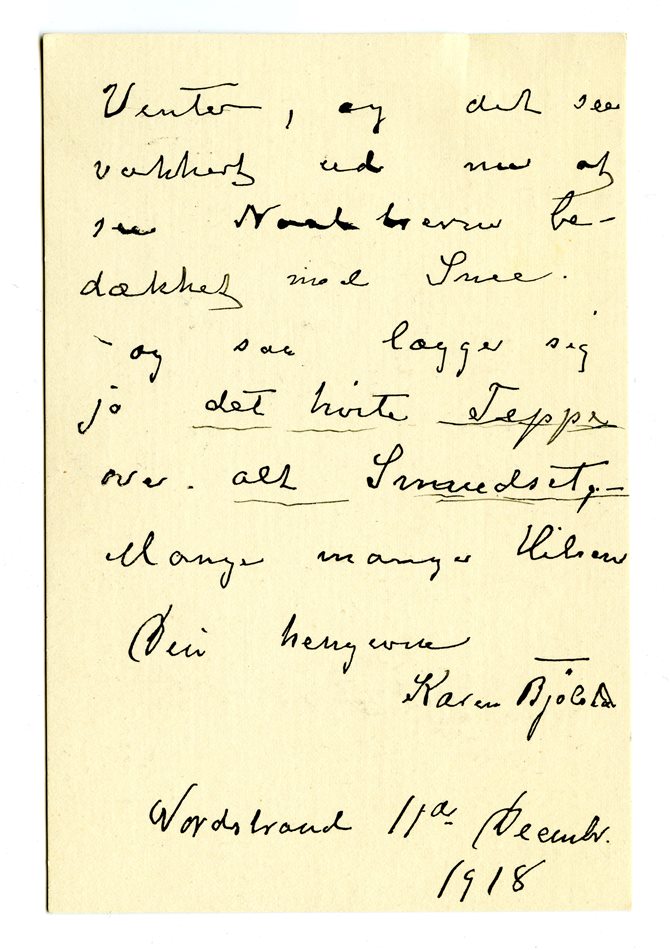 Venter, og det see
vakkert ud nu at
see Naaletrærne be-
dækket med Snee.
- og saa lægger sig
jo det hvite Tæppe
over alt Smudset,-
Mange mange Hilsen
Din hengivne
Karen Bjölstad
Nordstrand 11te Decembr.
1918